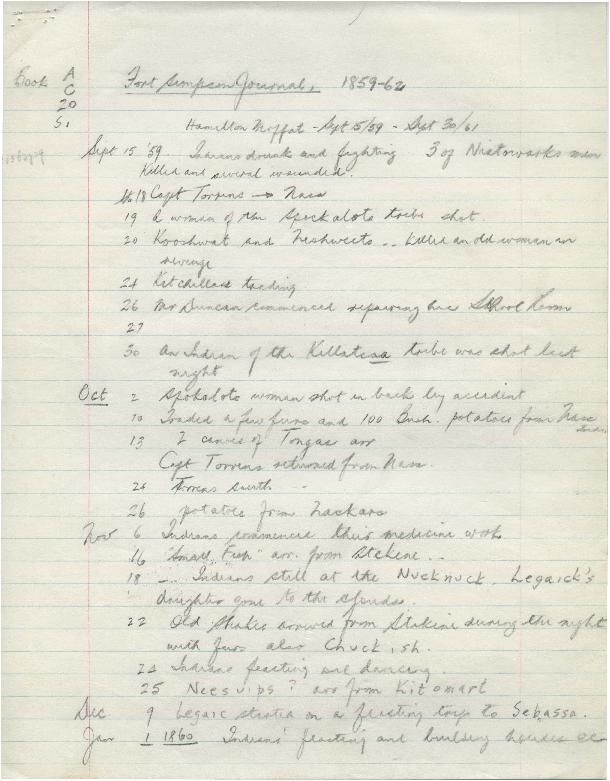 Book A
C
20
S1
Fort Simpson Journal, 1859-62
Hamilton Moffat - Sept 15/59 - Sept 30/61
Sept 15 '59 Indians drunk and fighting 3 of Nistowaks men
killed and several wounded.
18 Capt Torrens → Nass
19 A woman of the Spokalots tribe shot.
20 Kooshwat and Neshweets .. killed an old woman in
revenge
24 Kitchillas trading
26 Mr Duncan commenced repairing his School Room
27
30 An Indian of the Killatsaa tribe was shot last
night
Oct 2 Spokaloto woman shot in back by accident
10 Traded a few furs and 100 Bush. potatoes from Nass
13 2 canoes of Tongas arr
Capt Torrens returned from Nass.
24 Torrens south --
26 potatoes from
Nov 6 Indians commence their medicine work
16 "Small Fish" arr. from Stekine ..
18 -- Indians still at the Nucknuck. Legaick's
daughter gone to the clouds.
22 Old Shakes arrived from Stekine during the night
with furs also Chuckish.
24 Indians feasting and dancing.
25 Neesvips ? arr from Kitomart
Dec 9 Legaic started on a feasting trip to Sebassa.
Jan 1 1860 Indians' feasting and building houses